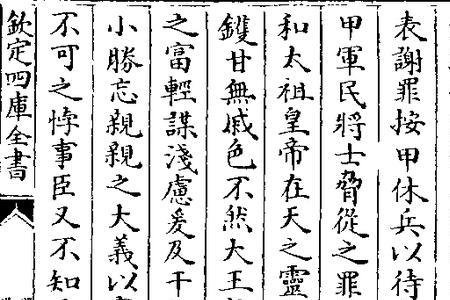 表謝罪按甲休兵以待
甲軍民將士脅從之罪
和太祖皇帝在天之靈
鑊甘無戚色不然大王
之富輕謀淺慮爰及干
小勝忘親親之大義以
不可之悖事臣又不知
欽定四庫全書